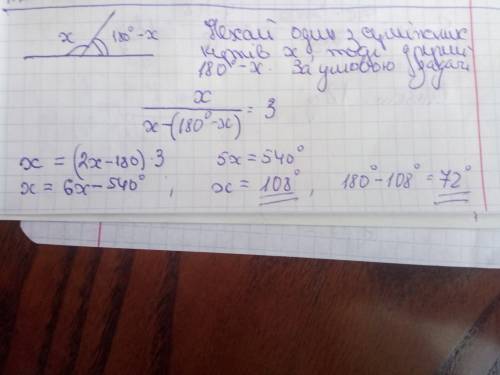 x 180°-x
Нехай один з суміжних
кутів x, тоді другий
180°-x. За умовою задачі
x/(x-(180°-x)) = 3
x = (2x-180)·3 5x = 540°
x = 6x - 540°, x = 108°, 180°-108° = 72°